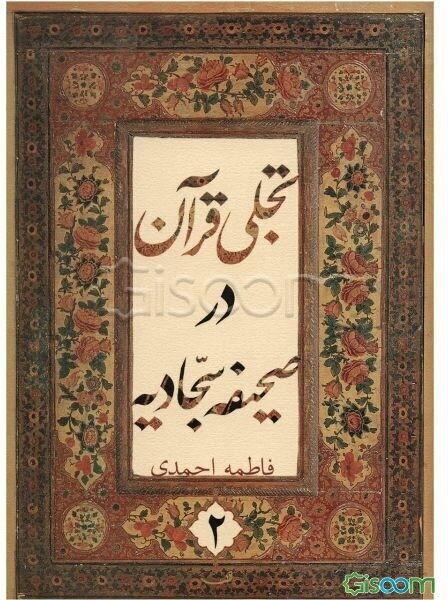 تجلی قرآن
در
صحیفه سجّادیه
فاطمه احمدی
۲
Gisoom
Gisoom